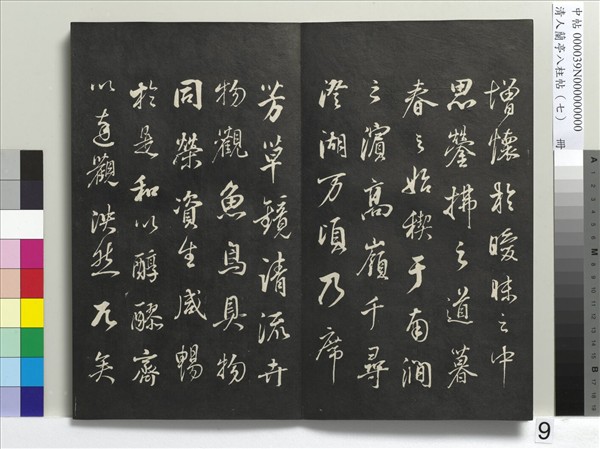 增懷於曖昧之中
思瑩拂之道暮
春之始禊于南澗
之濱高嶺千尋
澄湖万頃乃席
芳草鏡清流卉
物觀魚鳥具物
同榮資生咸暢
於是和以醇醪齊
以達觀泱然兀矣
中帖 000039N000000000
清人蘭亭八柱帖(七) 冊
9